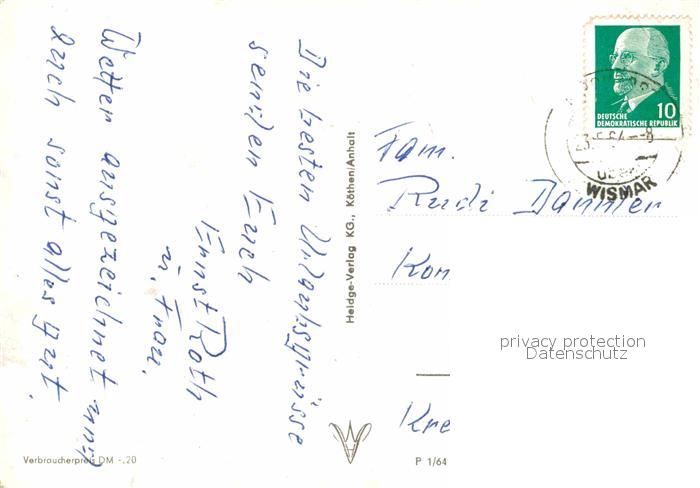 Die besten Urlaubsgrüsse
senden Euch
Ernst Roth
u. Frau.
Wetter ausgezeichnet und
auch sonst alles gut.
Verbraucherpreis DM -,20
Heldge-Verlag KG., Köthen/Anhalt
P 1/64
DEUTSCHE
DEMOKRATISCHE REPUBLIK
10
WISMAR
Fam.
Rudi
Kon
Kre
privacy protection
Datenschutz